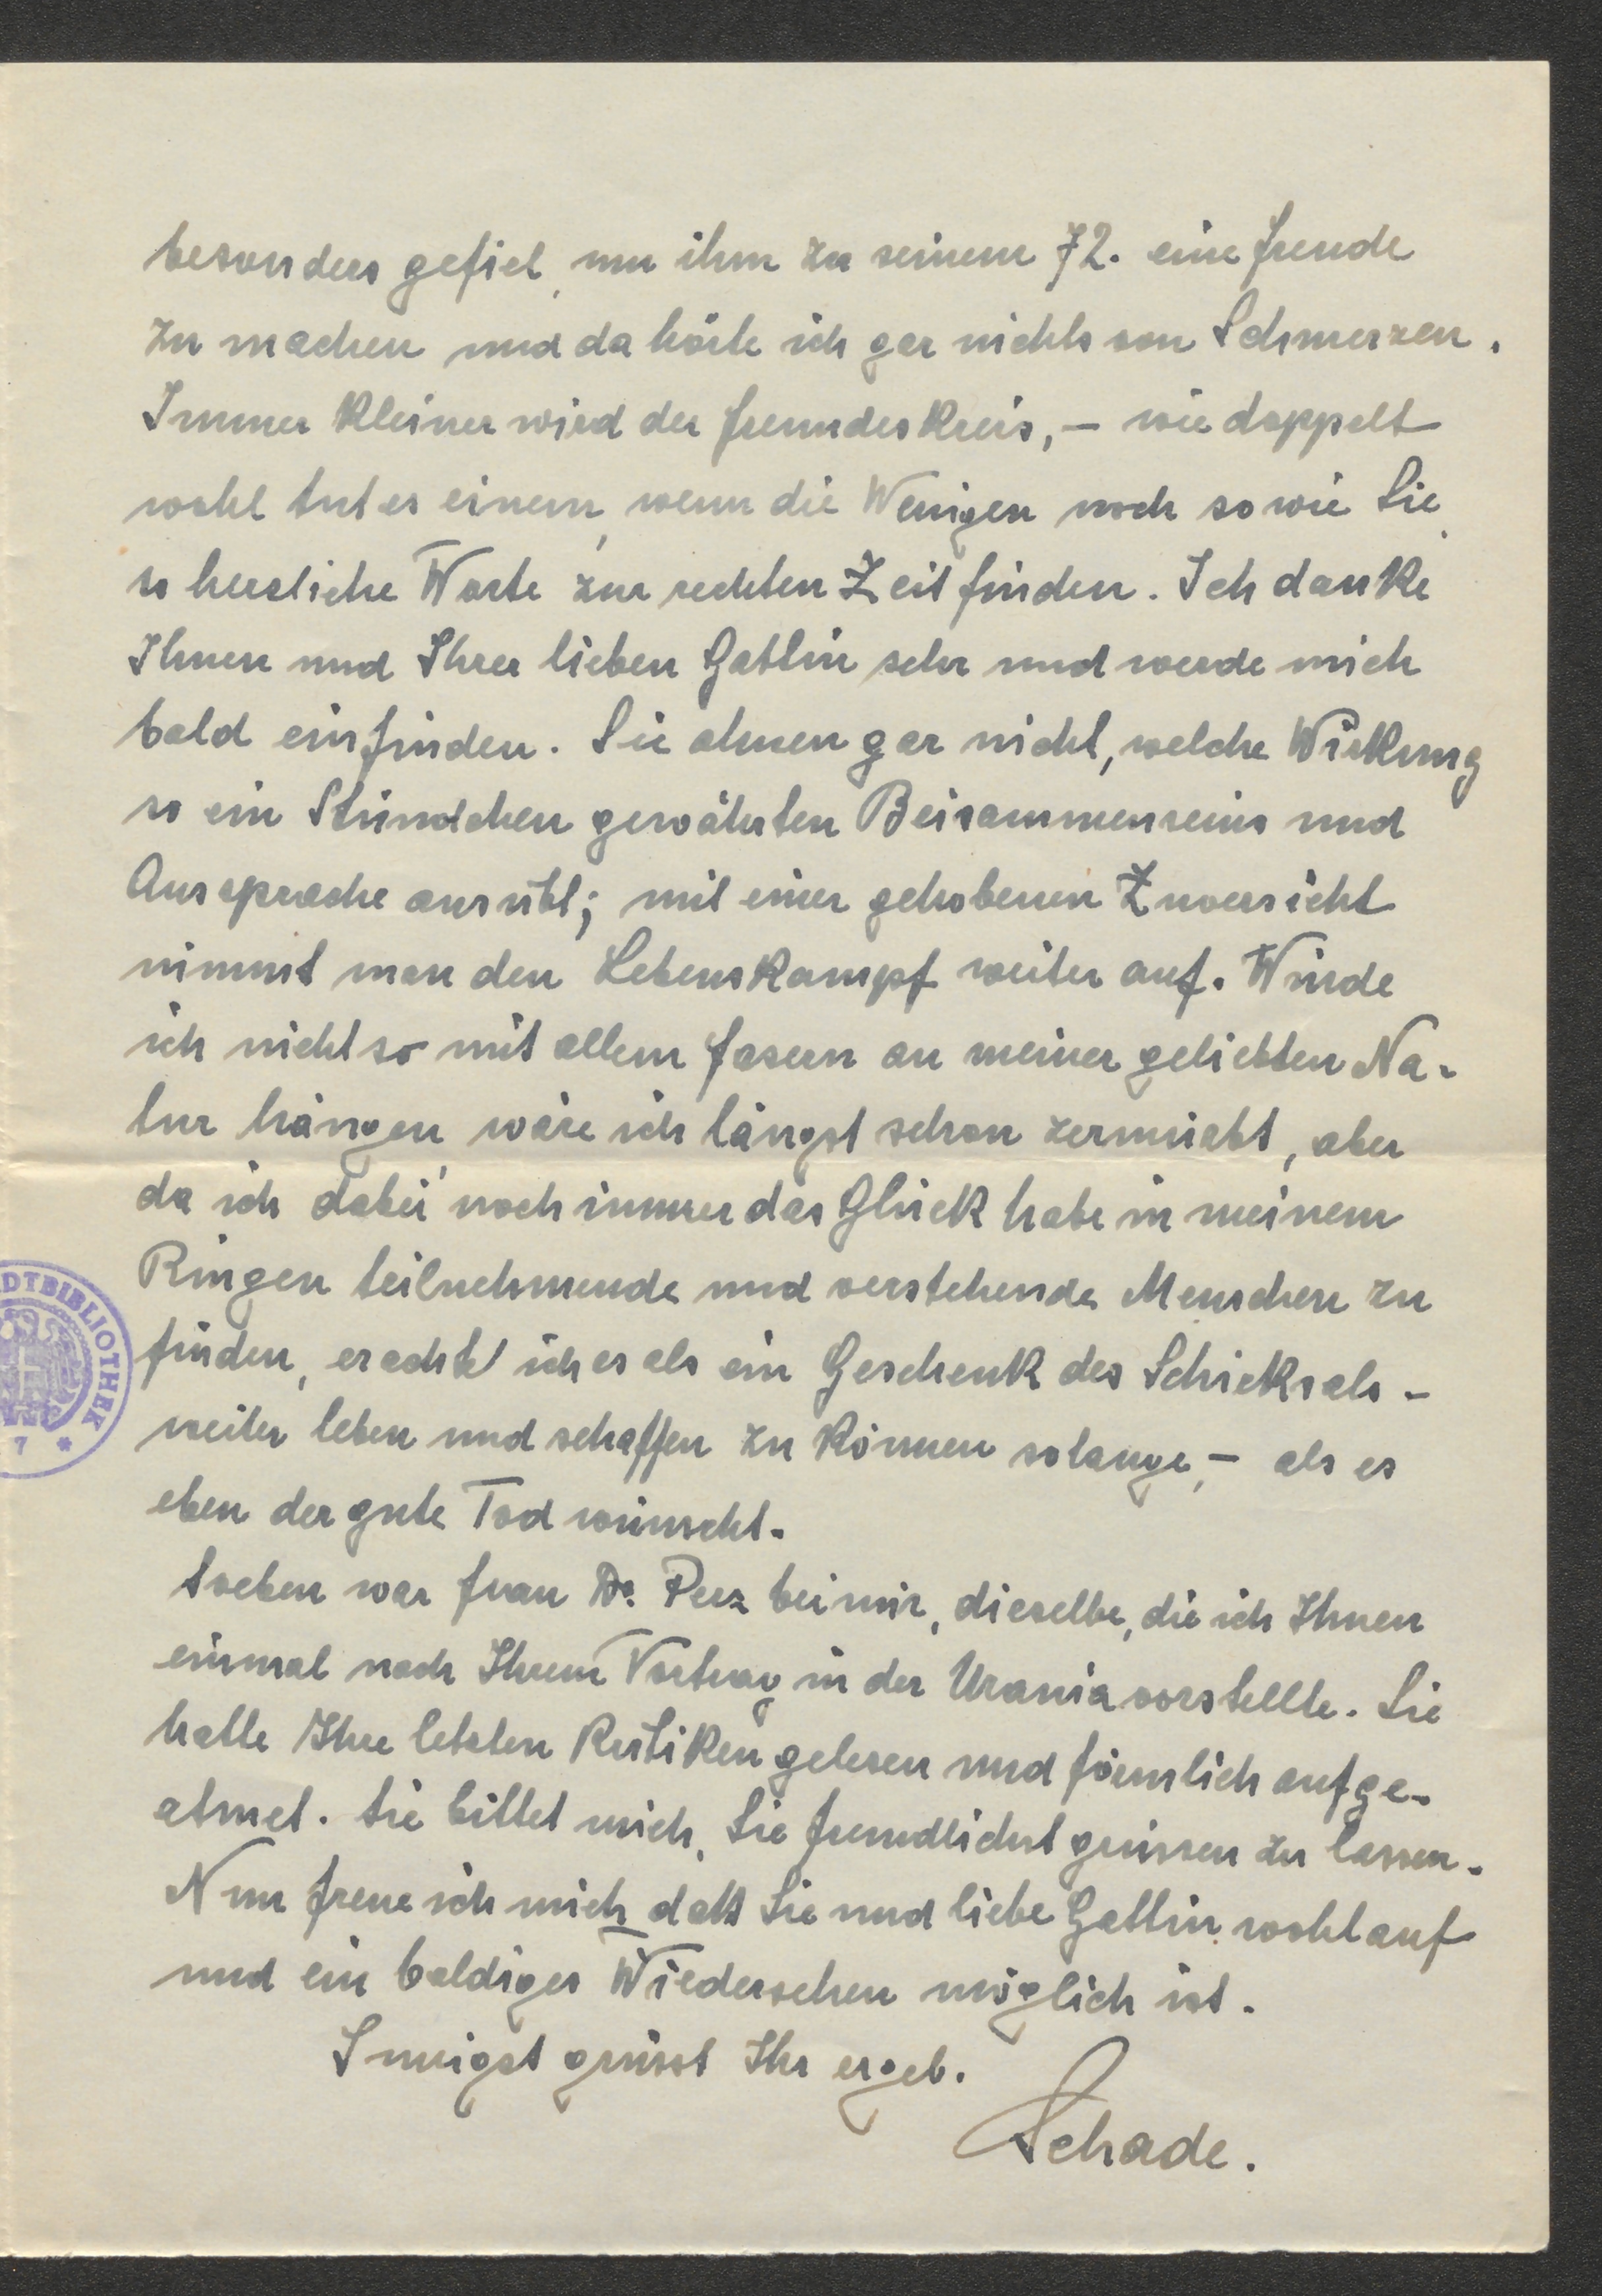 besonders gefiel, um ihm zu seinem 72. eine Freude
zu machen und da hörte ich gar nichts von Schmerzen.
Immer kleiner wird der Freundeskreis, – wie doppelt
wohl tut es einem, wenn die Wenigen noch so wie Sie
so herzliche Worte zur rechten Zeit finden. Ich danke
Ihnen und Ihrer lieben Gattin sehr und werde mich
bald einfinden. Sie ahnen gar nicht, welche Wirkung
so ein Stündchen gewährten Beisammenseins und
Aussprache ausübt; mit einer gehobenen Zuversicht
nimmt man den Lebenskampf weiter auf. Würde
ich nicht so mit allem Fasern an meiner geliebten Na-
tur hängen, wäre ich längst schon zermürbt, aber
da ich dabei noch immer das Glück habe in meinem
Ringen teilnehmende und verstehende Menschen zu
finden, erachte ich es als ein Geschenk des Schicksals –
weiter leben und schaffen zu können solange, – als es
eben der gute Tod wünscht.
Soeben war Frau Dr. Perz bei mir, dieselbe, die ich Ihnen
einmal nach Ihrem Vortrag in der Urania vorstellte. Sie
hatte Ihre letzten Kritiken gelesen und förmlich aufge-
atmet. Sie bittet mich, Sie freundlichst grüssen zu lassen.
Nun freue ich mich, daß Sie und liebe Gattin wohlauf
und ein baldiges Wiedersehen möglich ist.
Innigst grüsst Ihr ergeb.
Schade.
DTBIBLIOTHEK
7 *